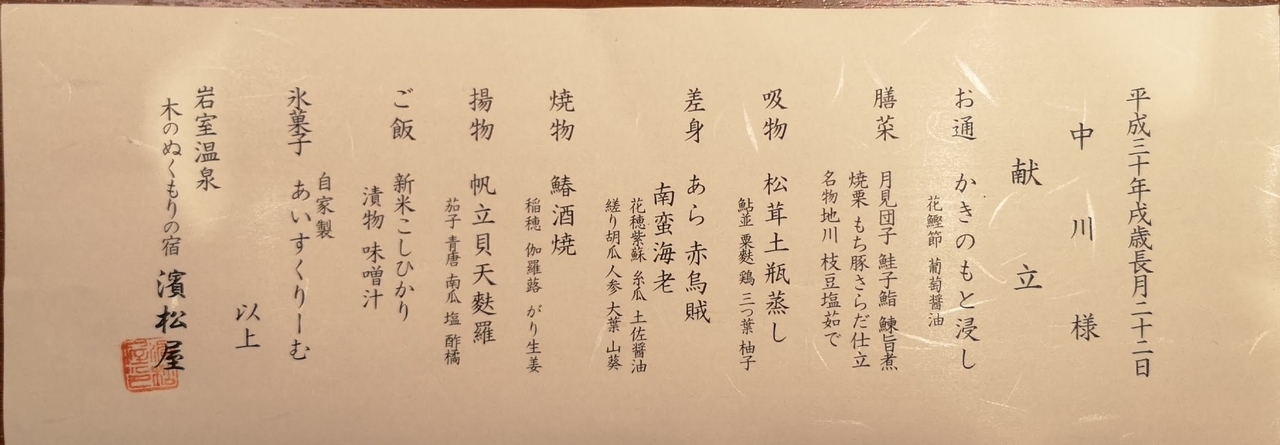 平成三十年戌歳長月二十二日
中川様
献立
お通 かきのもと浸し
花鰹節 葡萄醤油
膳菜 月見団子 鮭子鮨 鰊旨煮
焼栗 もち豚さらだ仕立
名物地川 枝豆塩茹で
吸物 松茸土瓶蒸し
鮎並 粟麩 鶏 三つ葉 柚子
差身 あら 赤烏賊
南蛮海老
花穂紫蘇 糸瓜 土佐醤油
縒り胡瓜 人参 大葉 山葵
焼物 鰆酒焼
稲穂 伽羅蕗 がり生姜
揚物 帆立貝天麩羅
茄子 青唐 南瓜 塩 酢橘
ご飯 新米こしひかり
漬物 味噌汁
自家製
氷菓子 あいすくりーむ
以上
岩室温泉
木のぬくもりの宿 濱松屋